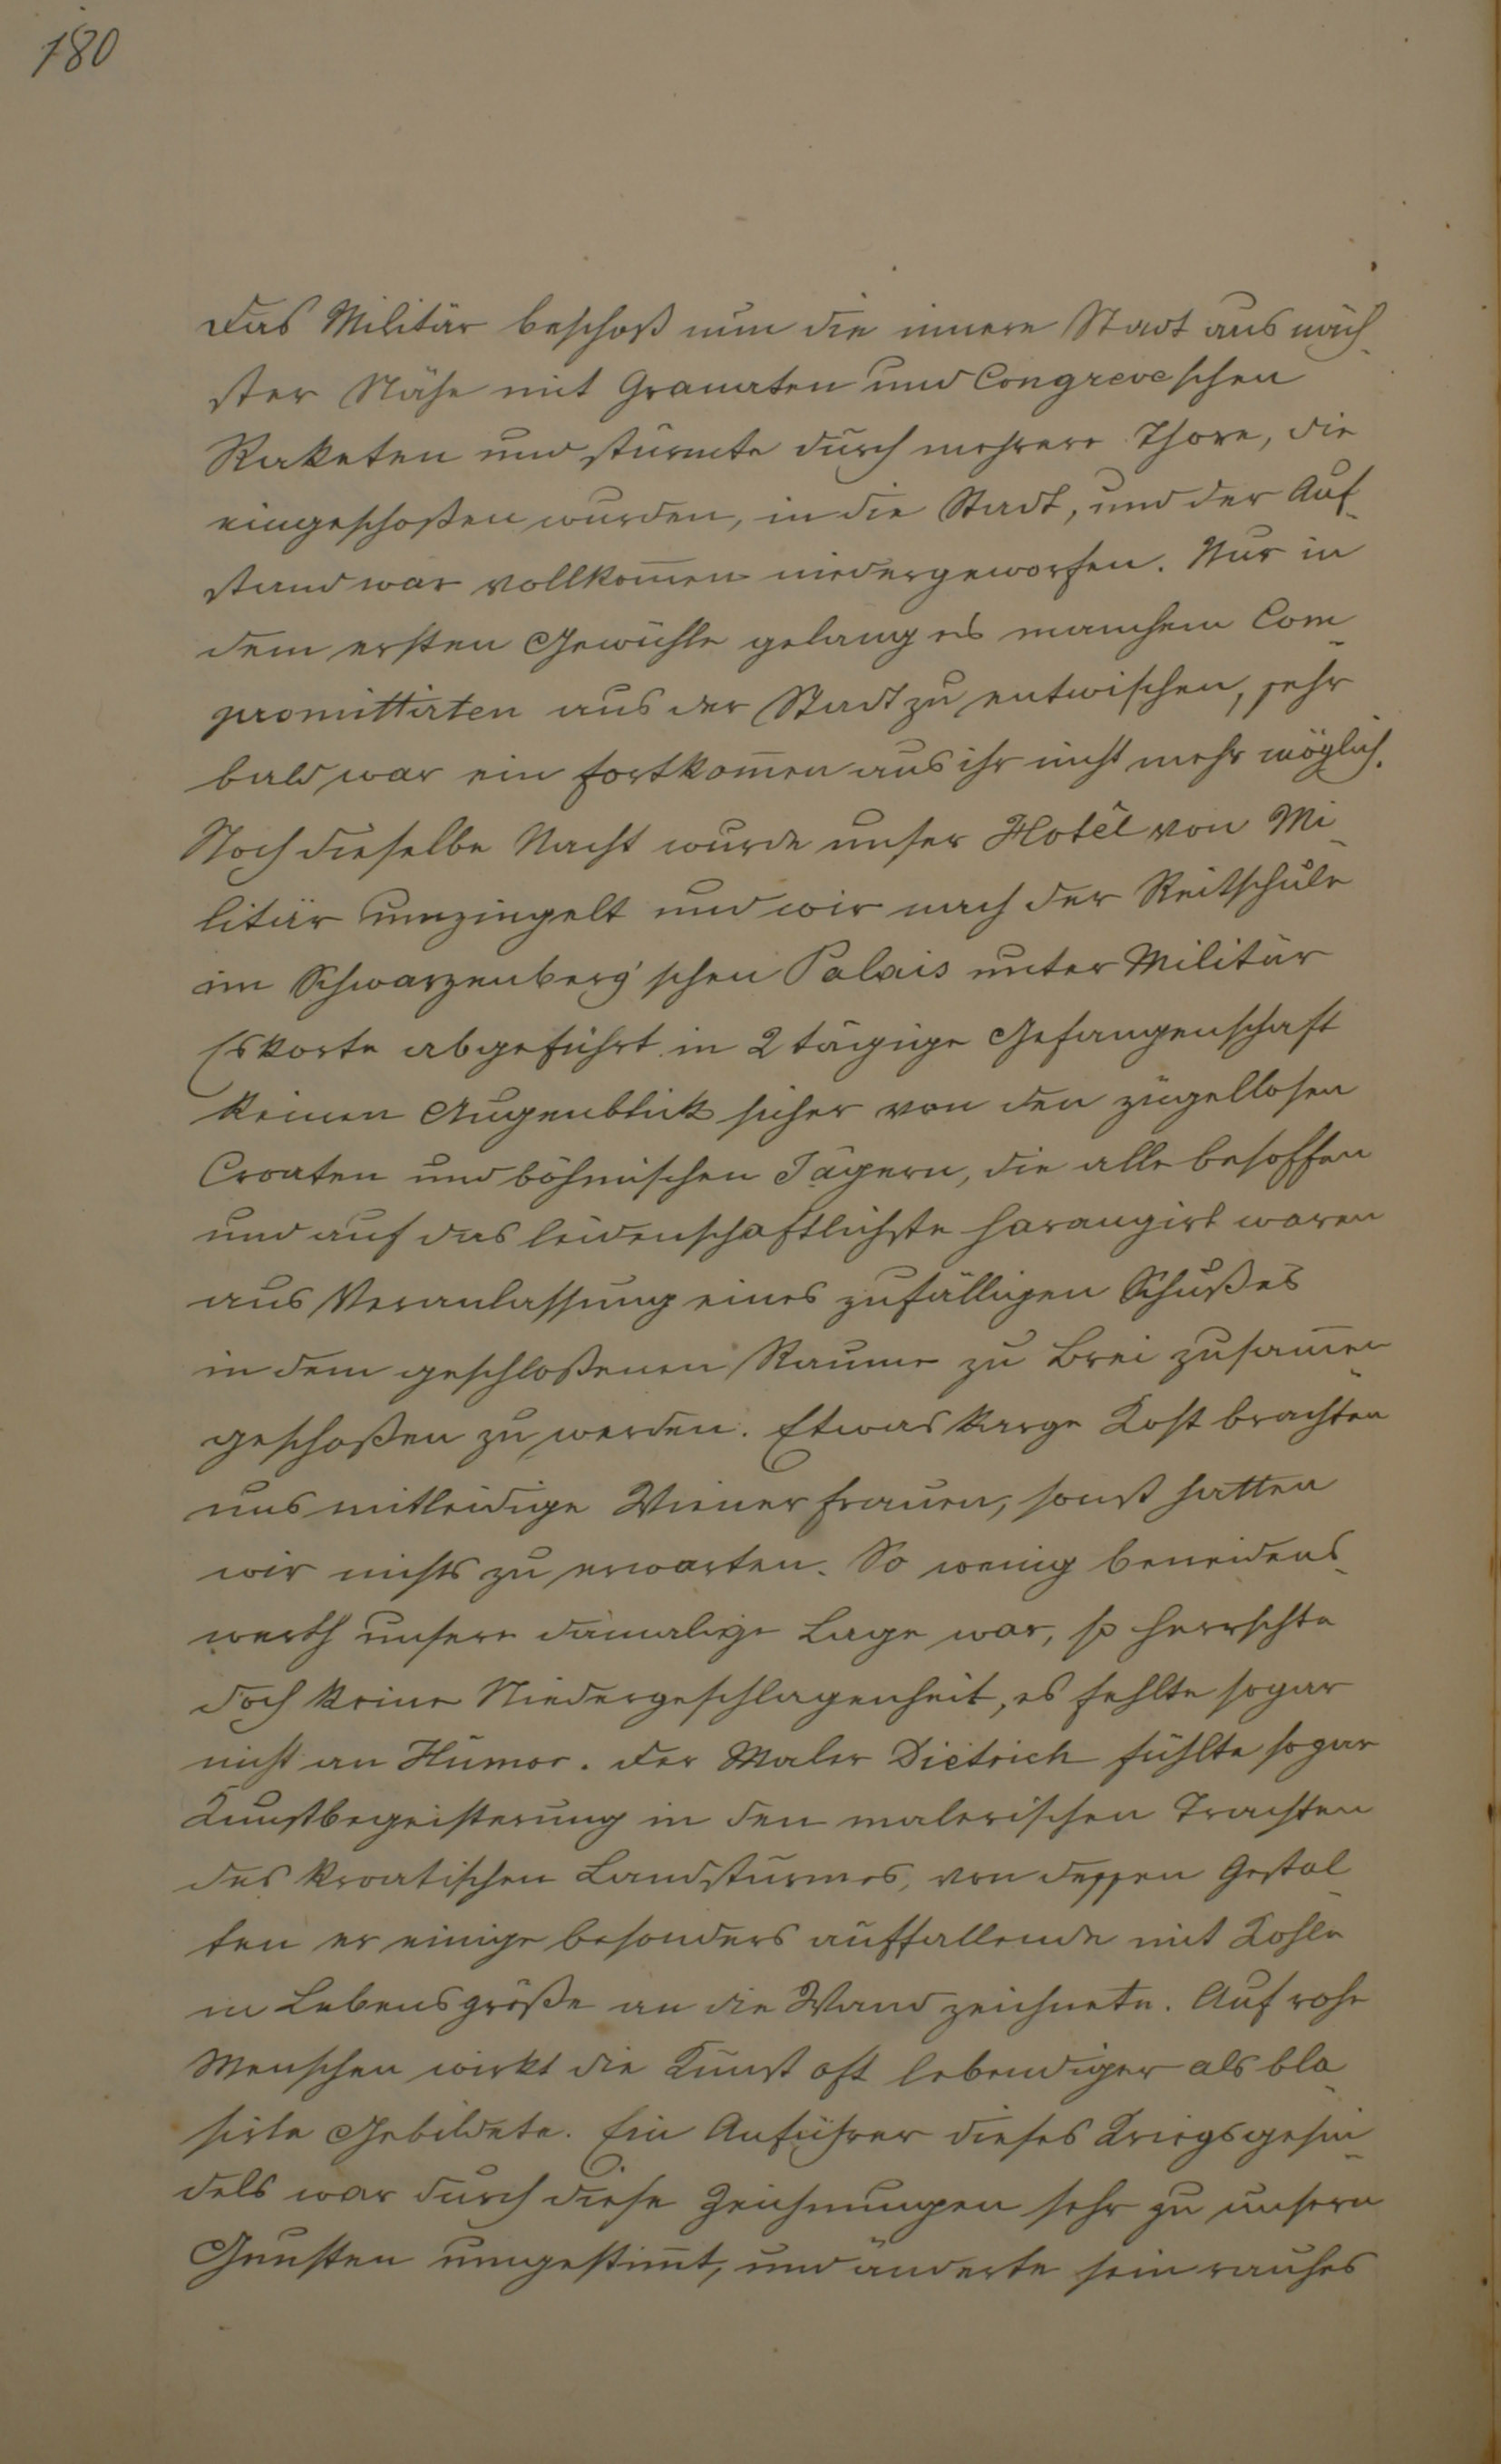 180
Das Militär beschoß nun die innere Stadt aus näch-
ster Nähe mit Granaten und Congreveschen
Raketen und stürmte durch mehrere Thore, die
eingeschoßen wurden, in die Stadt, und der Auf-
stand war vollkom̄en niedergeworfen. Nur in
dem ersten Gewühle gelang es manchem Com-
promittirten aus der Stadt zu entwischen, sehr
bald war ein Fortkom̄en aus ihr nicht mehr möglich.
Noch dieselbe Nacht wurde unser Hotêl von Mi-
litär umzingelt und wir nach der Reitschule
im Schwarzenberg'schen Palais unter Militär
Eskorte abgeführt in 2 tägige Gefangenschaft
keinen Augenblick sicher von den zügellosen
Croaten und böhmischen Jägern, die alle besoffen
und auf das leidenschaftlichste harangirt waren
aus Veranlassung eines zufälligen Schußes
in dem geschloßenen Raume zu Brei zusam̄en-
geschoßen zu werden. Etwas karge Kost brachten
uns mitleidige Wiener Frauen, sonst hatten
wir nichts zu erwarten. So wenig beneidens-
werth unsere damalige Lage war, so herrschte
doch keine Niedergeschlagenheit, es fehlte sogar
nicht an Humor. Der Maler Dietrich fühlte sogar
Kunstbegeisterung in den malerischen Trachten
des kroatischen Landsturmes, von dessen Gestal-
ten er einige besonders auffallende mit Kohle
in Lebensgröße an die Wand zeichnete. Auf rohe
Menschen wirkt die Kunst oft lebendiger als bla-
sirte Gebildete. Ein Anführer dieses Kriegsgesin-
dels war durch diese Zeichnungen sehr zu unsern
Gunsten umgestim̄t, und änderte sein rauhes